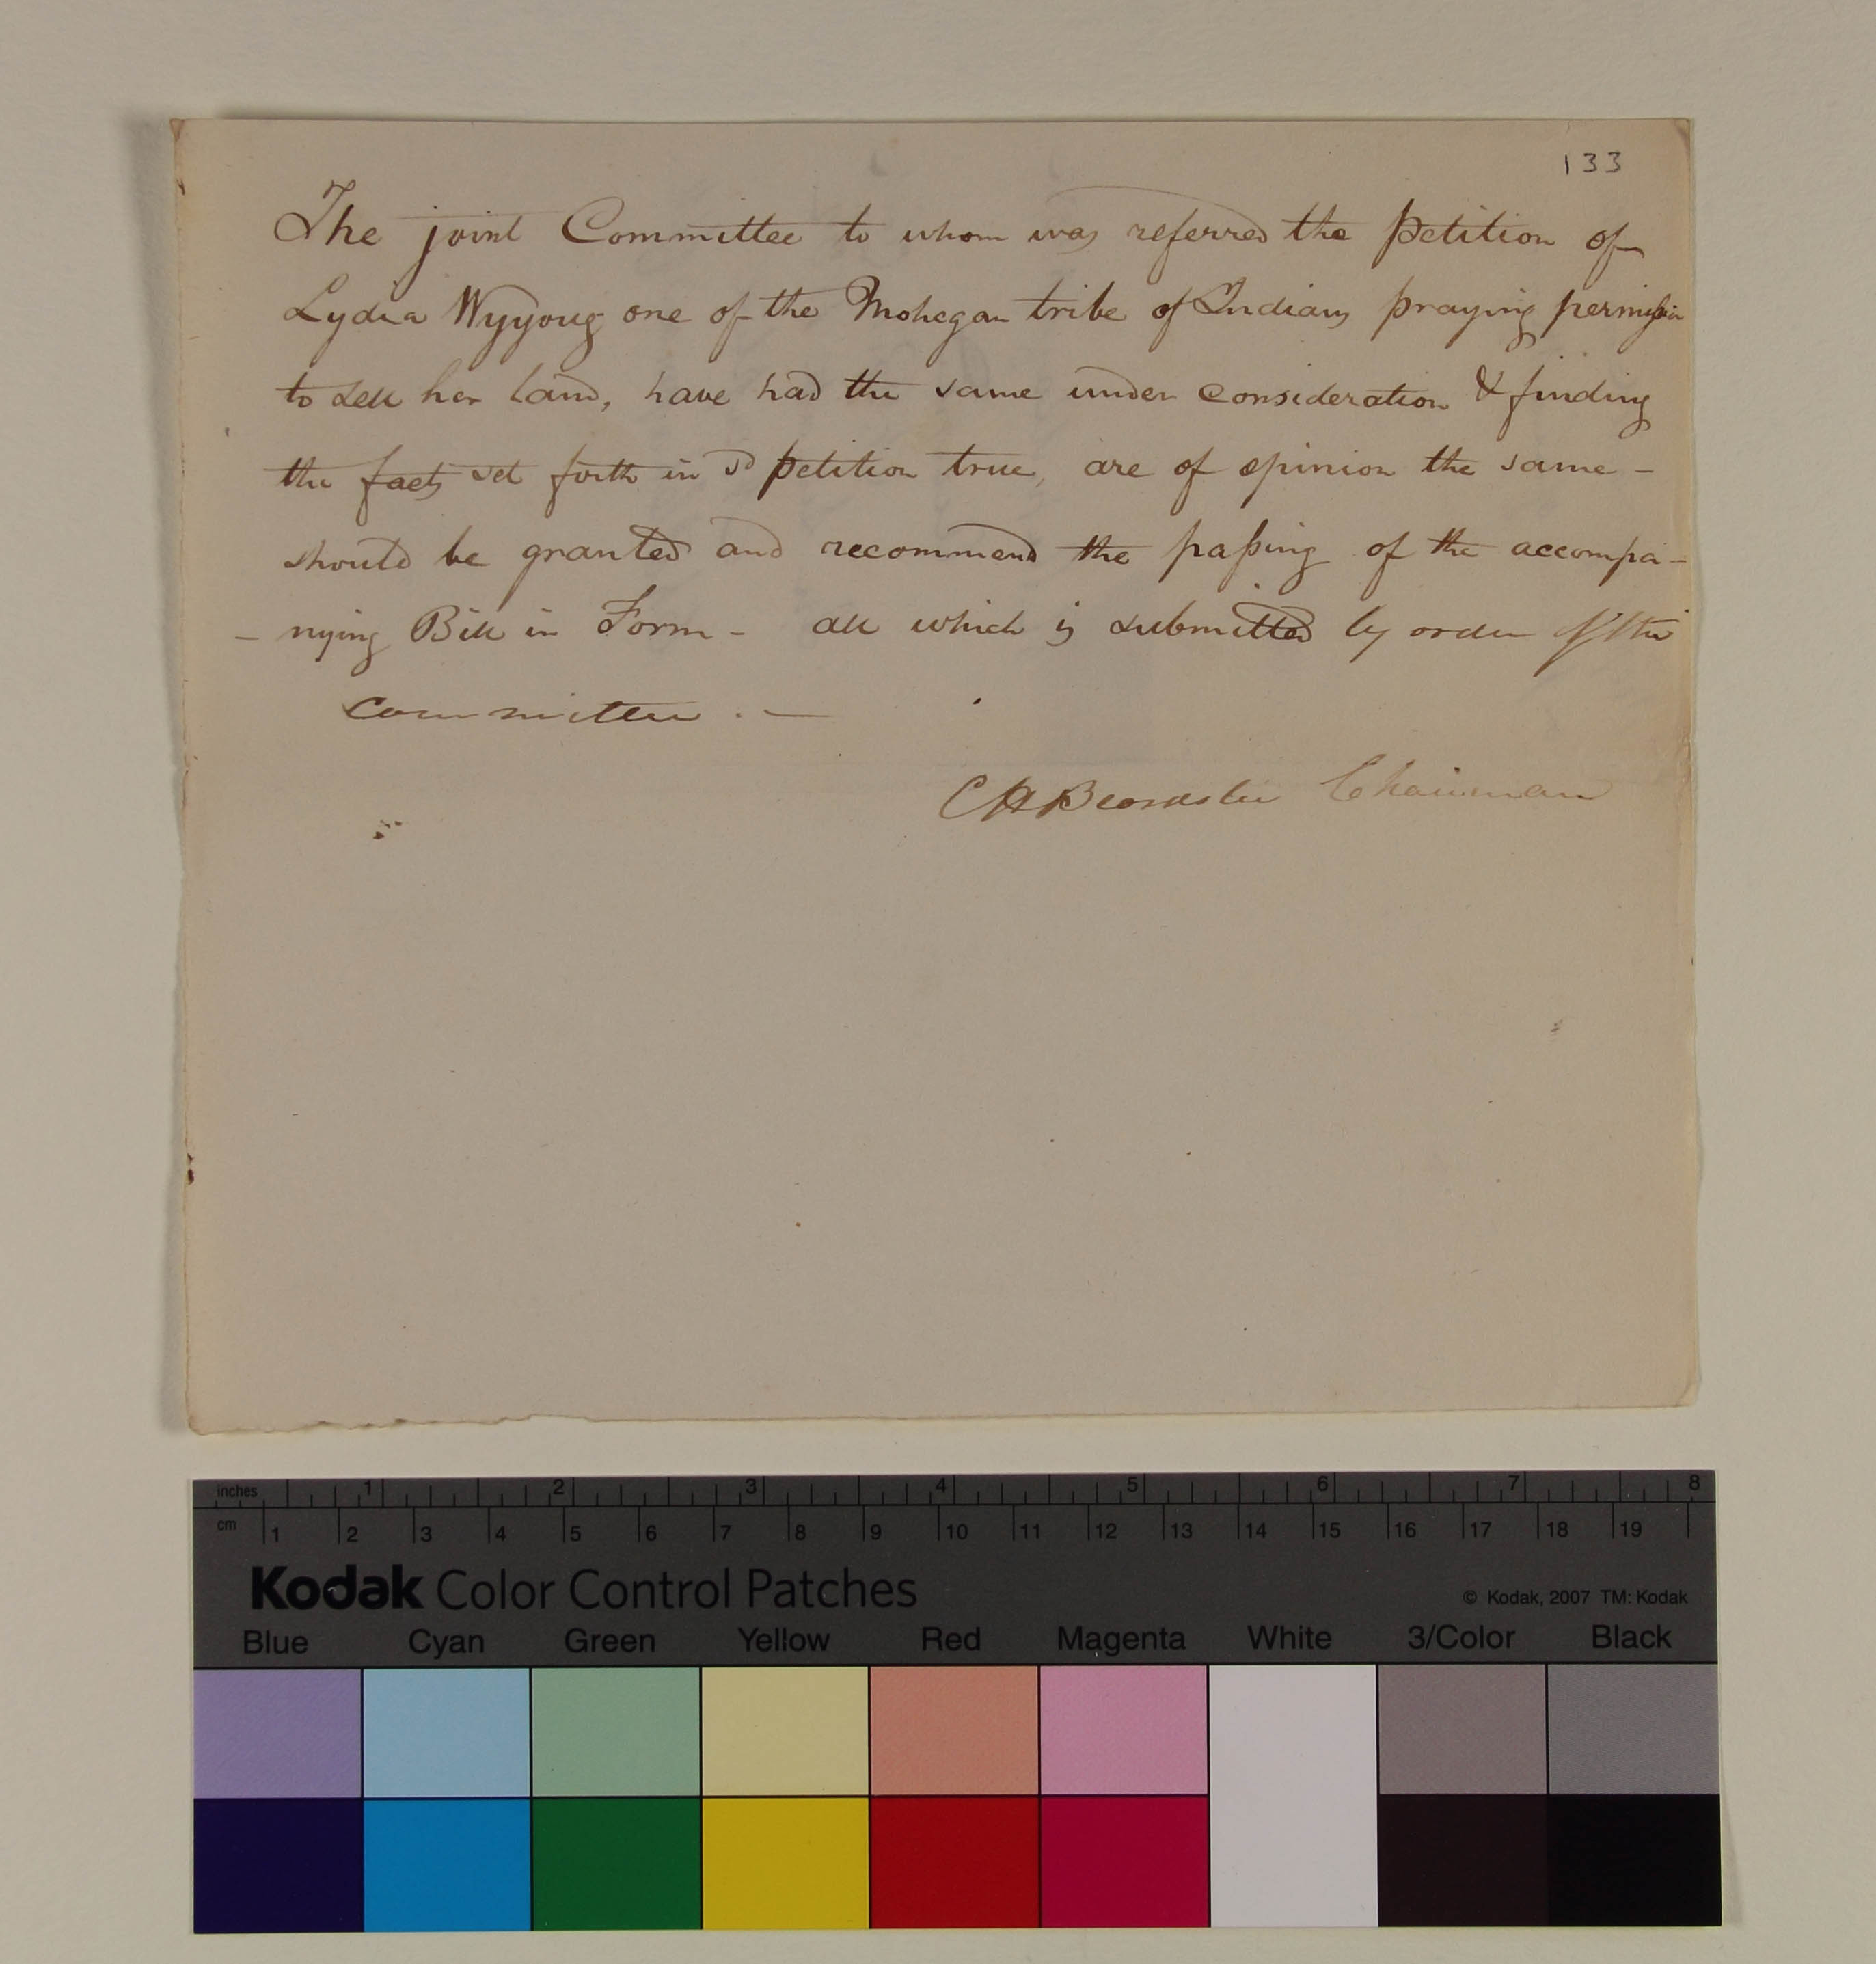 133
The joint Committee to whom was referred the petition of
Lydia Wyyoug one of the Mohegan tribe of Indians praying permission
to sell her land, have had the same under consideration & finding
the facts set forth in sd petition true, are of opinion the same -
should be granted and recommend the passing of the accompa-
- nying Bill in Form - all which is submitted by order of the
committee. —
Chairman
inches 1 2 3 4 5 6 7 8
cm 1 2 3 4 5 6 7 8 9 10 11 12 13 14 15 16 17 18 19
Kodak Color Control Patches
© Kodak, 2007 TM: Kodak
Blue Cyan Green Yellow Red Magenta White 3/Color Black